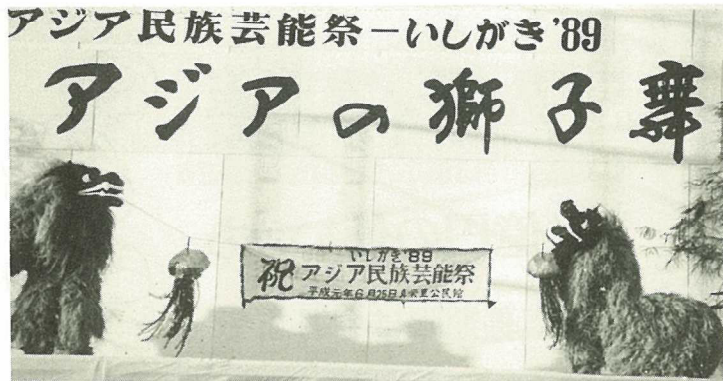 アジア民族芸能祭－いしがき'89
アジアの獅子舞
いしがき'89
祝 アジア民族芸能祭
平成元年6月25日 公民館